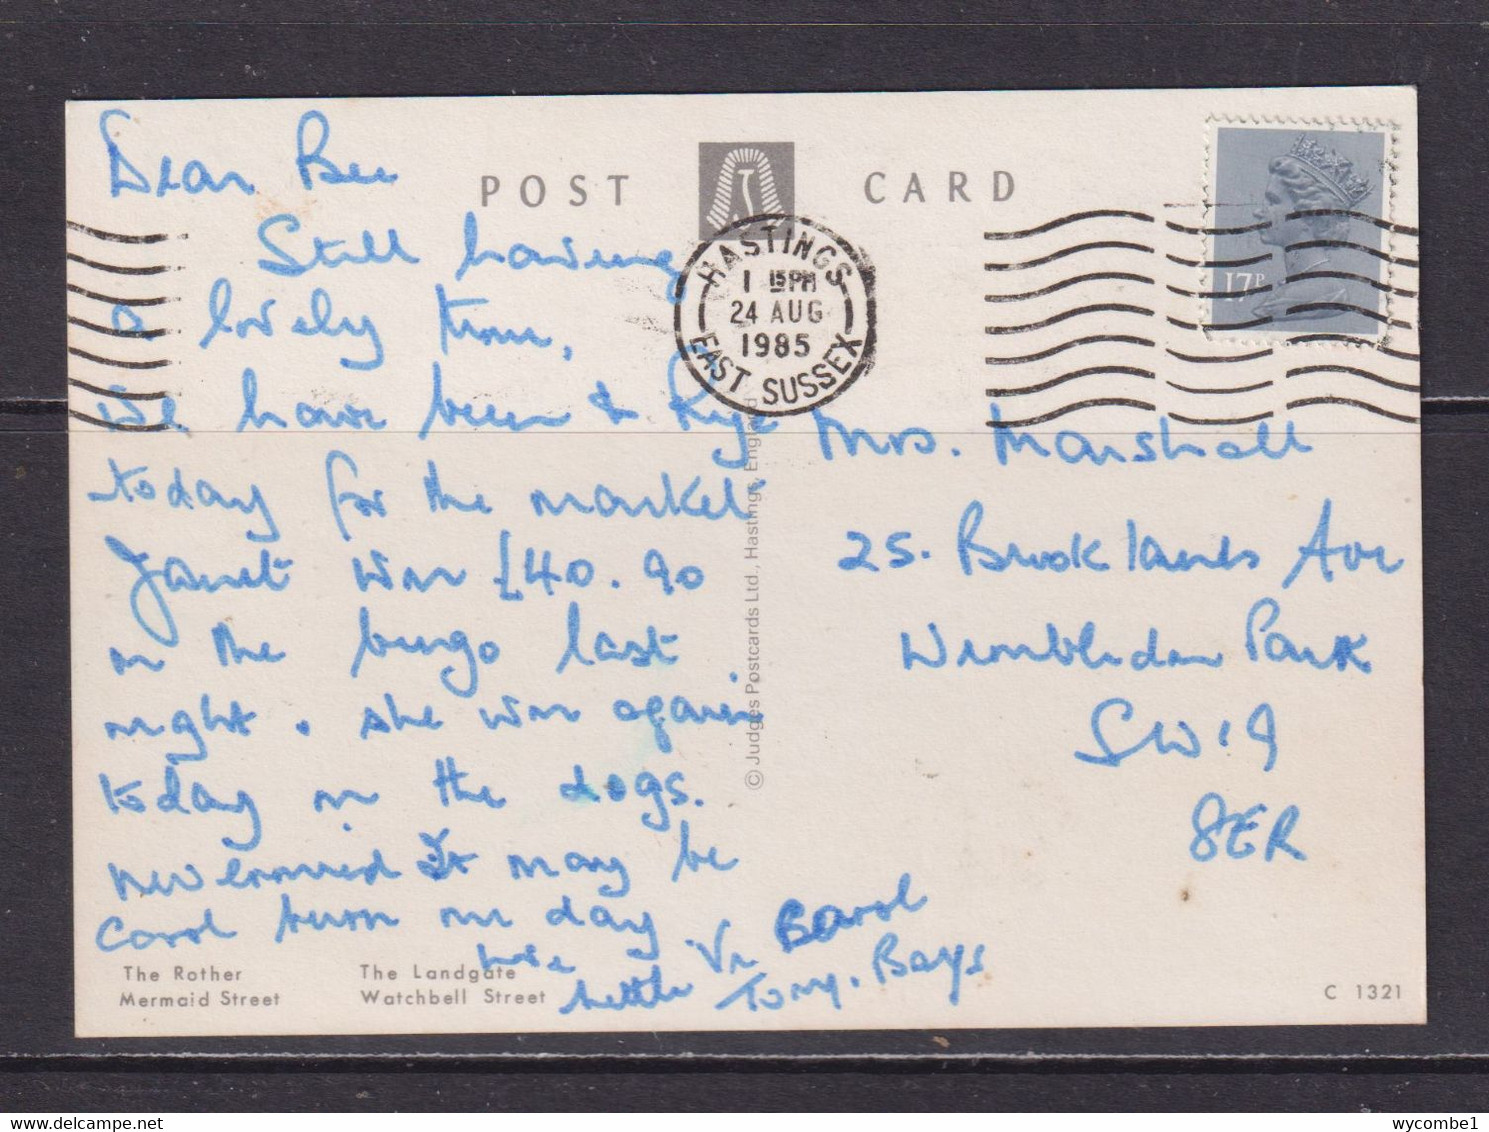 Dear Bee
Still having
a lovely time.
We have been to Rye
today for the market
Janet won £40.90
on the bingo last
night. she won again
today on the dogs.
never mind It may be
Carol turn one day
love Vi Carol
Tony. Bays
POST CARD
HASTINGS
1 15PM
24 AUG
1985
EAST SUSSEX
17P
Mrs. Marshall
25. Brooklands Ave
Wimbledon Park
SW19
8ER
© Judges Postcards Ltd., Hastings, England
The Rother The Landgate
Mermaid Street Watchbell Street
C 1321
wycombe1